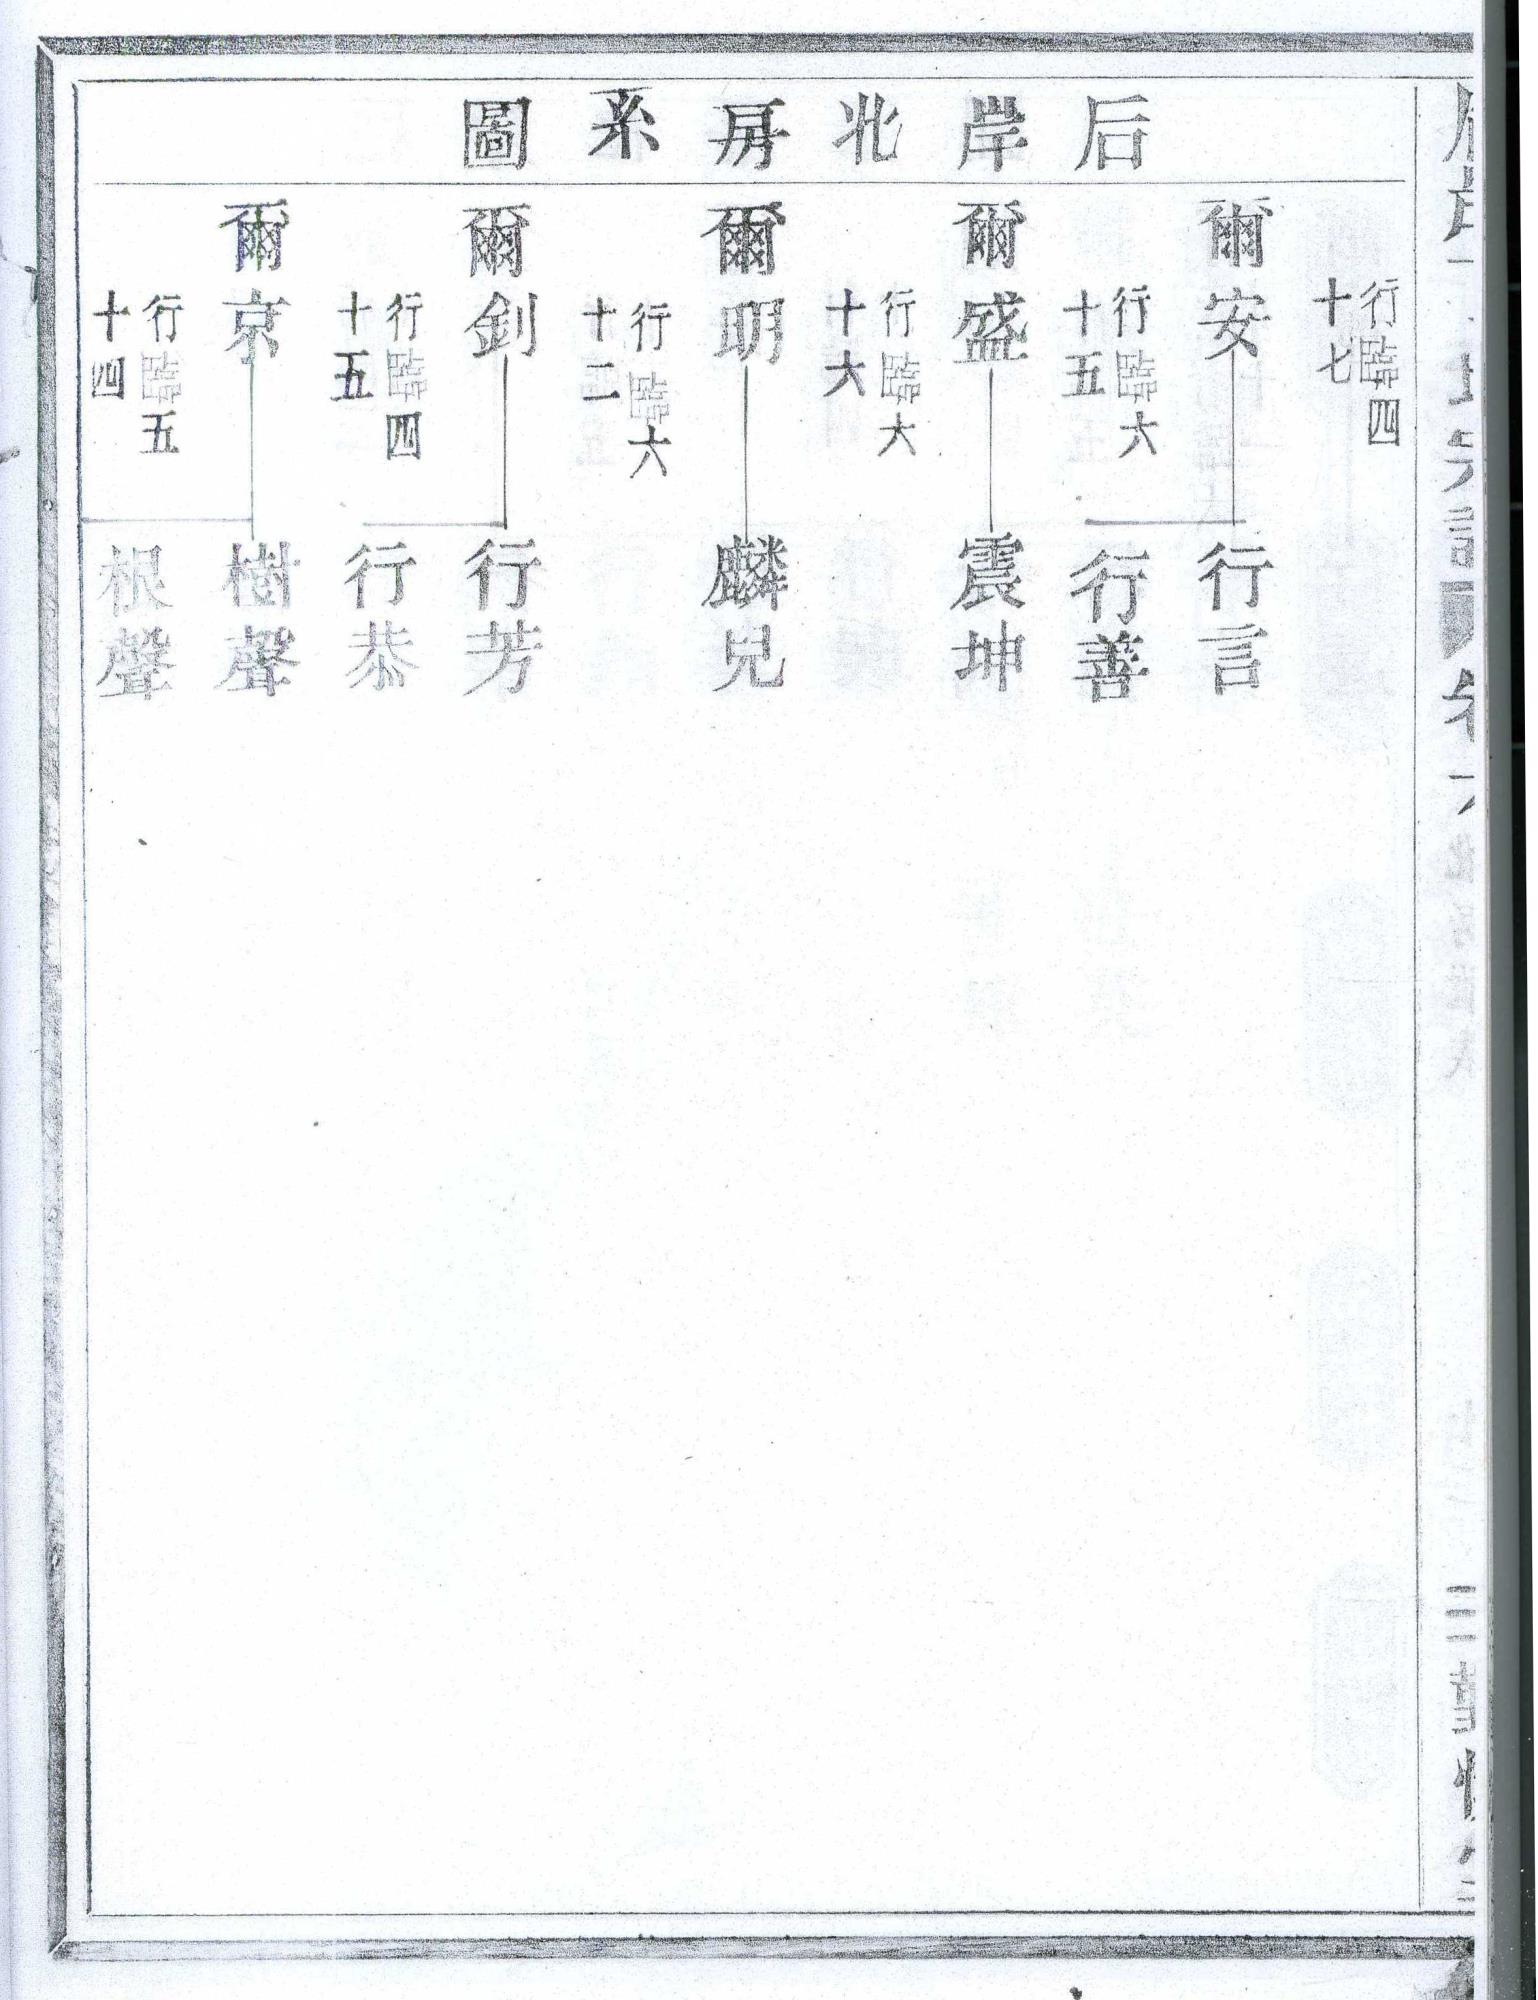 后岸北房系圖
行臨四
十七
爾安
行言
行臨六
十五
行善
爾盛
震坤
行臨六
十六
爾明
麟兒
行臨六
十二
爾釗
行芳
行臨四
十五
行恭
爾京
樹聲
行臨五
十四
根聲